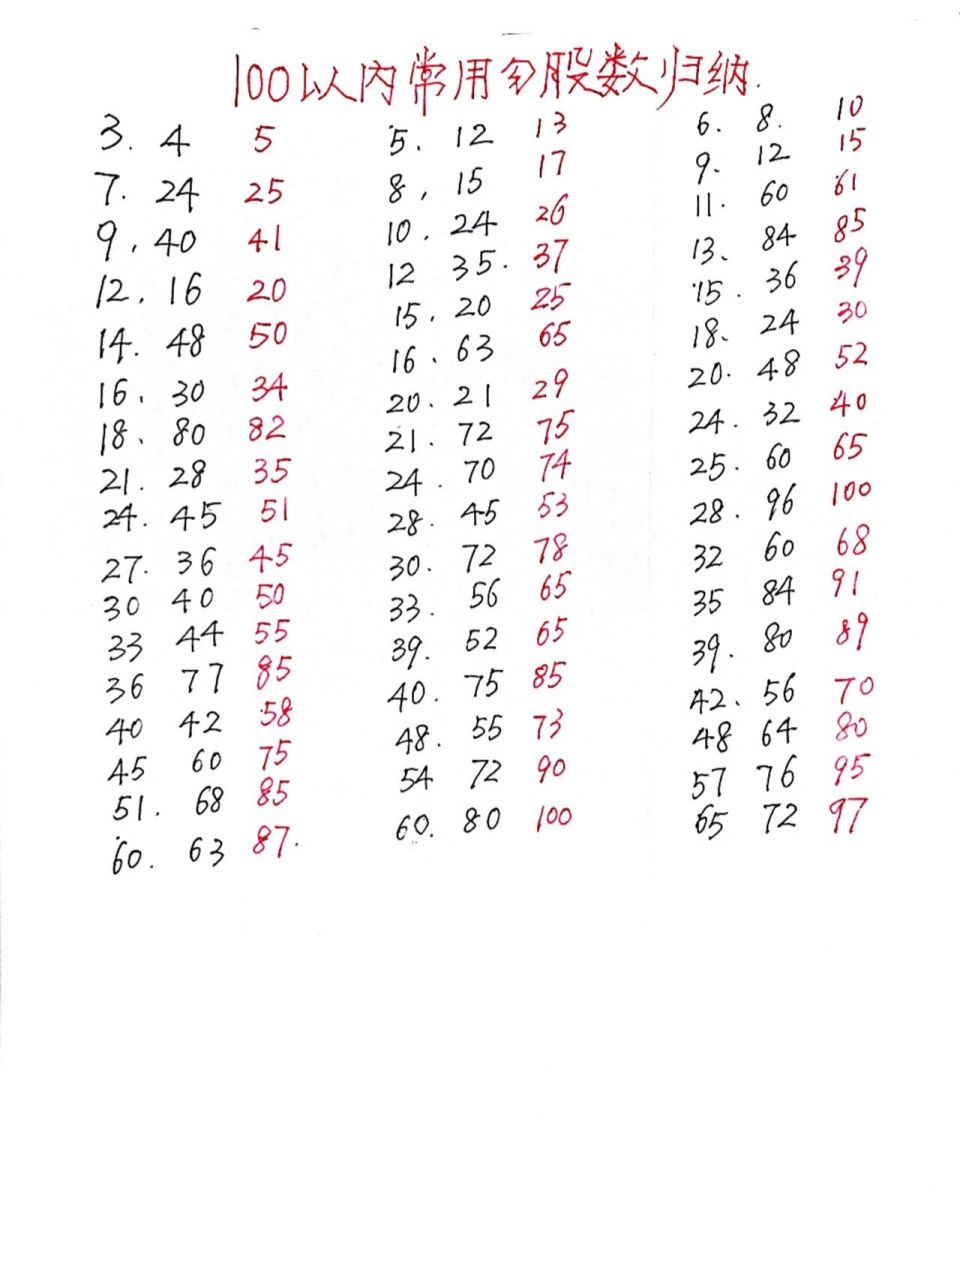 100以内常用勾股数归纳.
3. 4 5 5. 12 13 6. 8. 10
7. 24 25 8, 15 17 9. 12 15
9, 40 41 10. 24 26 11. 60 61
12. 16 20 12 35. 37 13、 84 85
14. 48 50 15. 20 25 15. 36 39
16. 30 34 16. 63 65 18. 24 30
18. 80 82 20. 21 29 20. 48 52
21. 28 35 21. 72 75 24. 32 40
24. 45 51 24. 70 74 25. 60 65
27. 36 45 28. 45 53 28. 96 100
30 40 50 30. 72 78 32 60 68
33 44 55 33. 56 65 35 84 91
36 77 85 39. 52 65 39. 80 89
40 42 58 40. 75 85 42、 56 70
45 60 75 48. 55 73 48 64 80
51. 68 85 54 72 90 57 76 95
60. 63 87. 60. 80 100 65 72 97